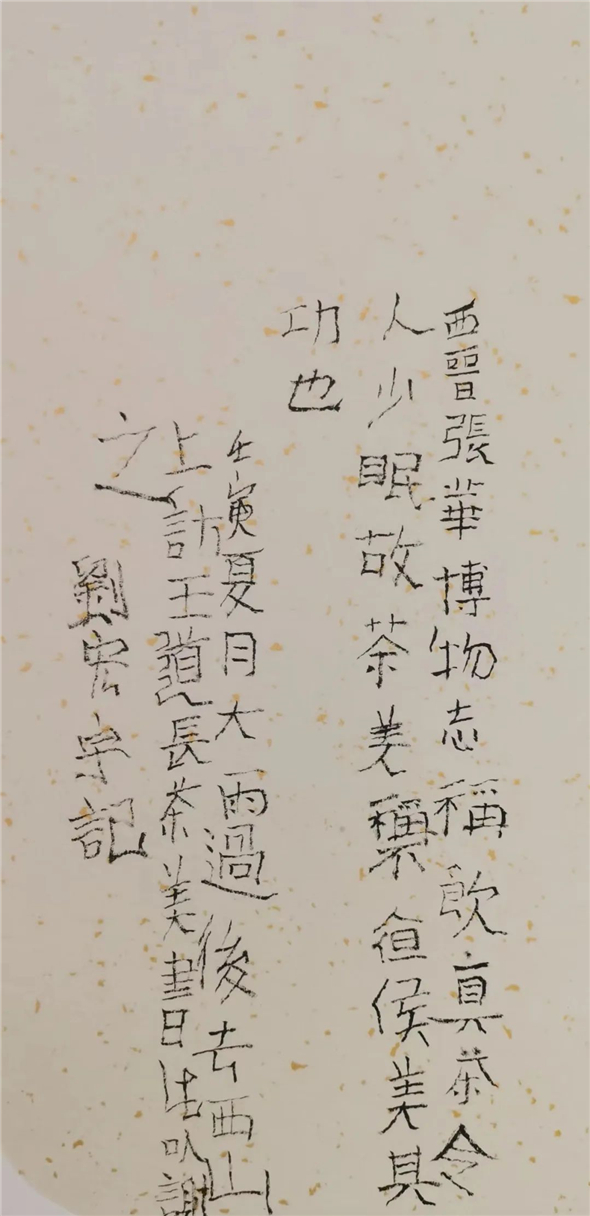 西晉張華博物志稱飲真茶令
人少眠故茶美稱不亱侯美其
功也
壬寅夏月大雨過後去西山
上訪王道長茶美書日㕥謝
之
劉宏宇記